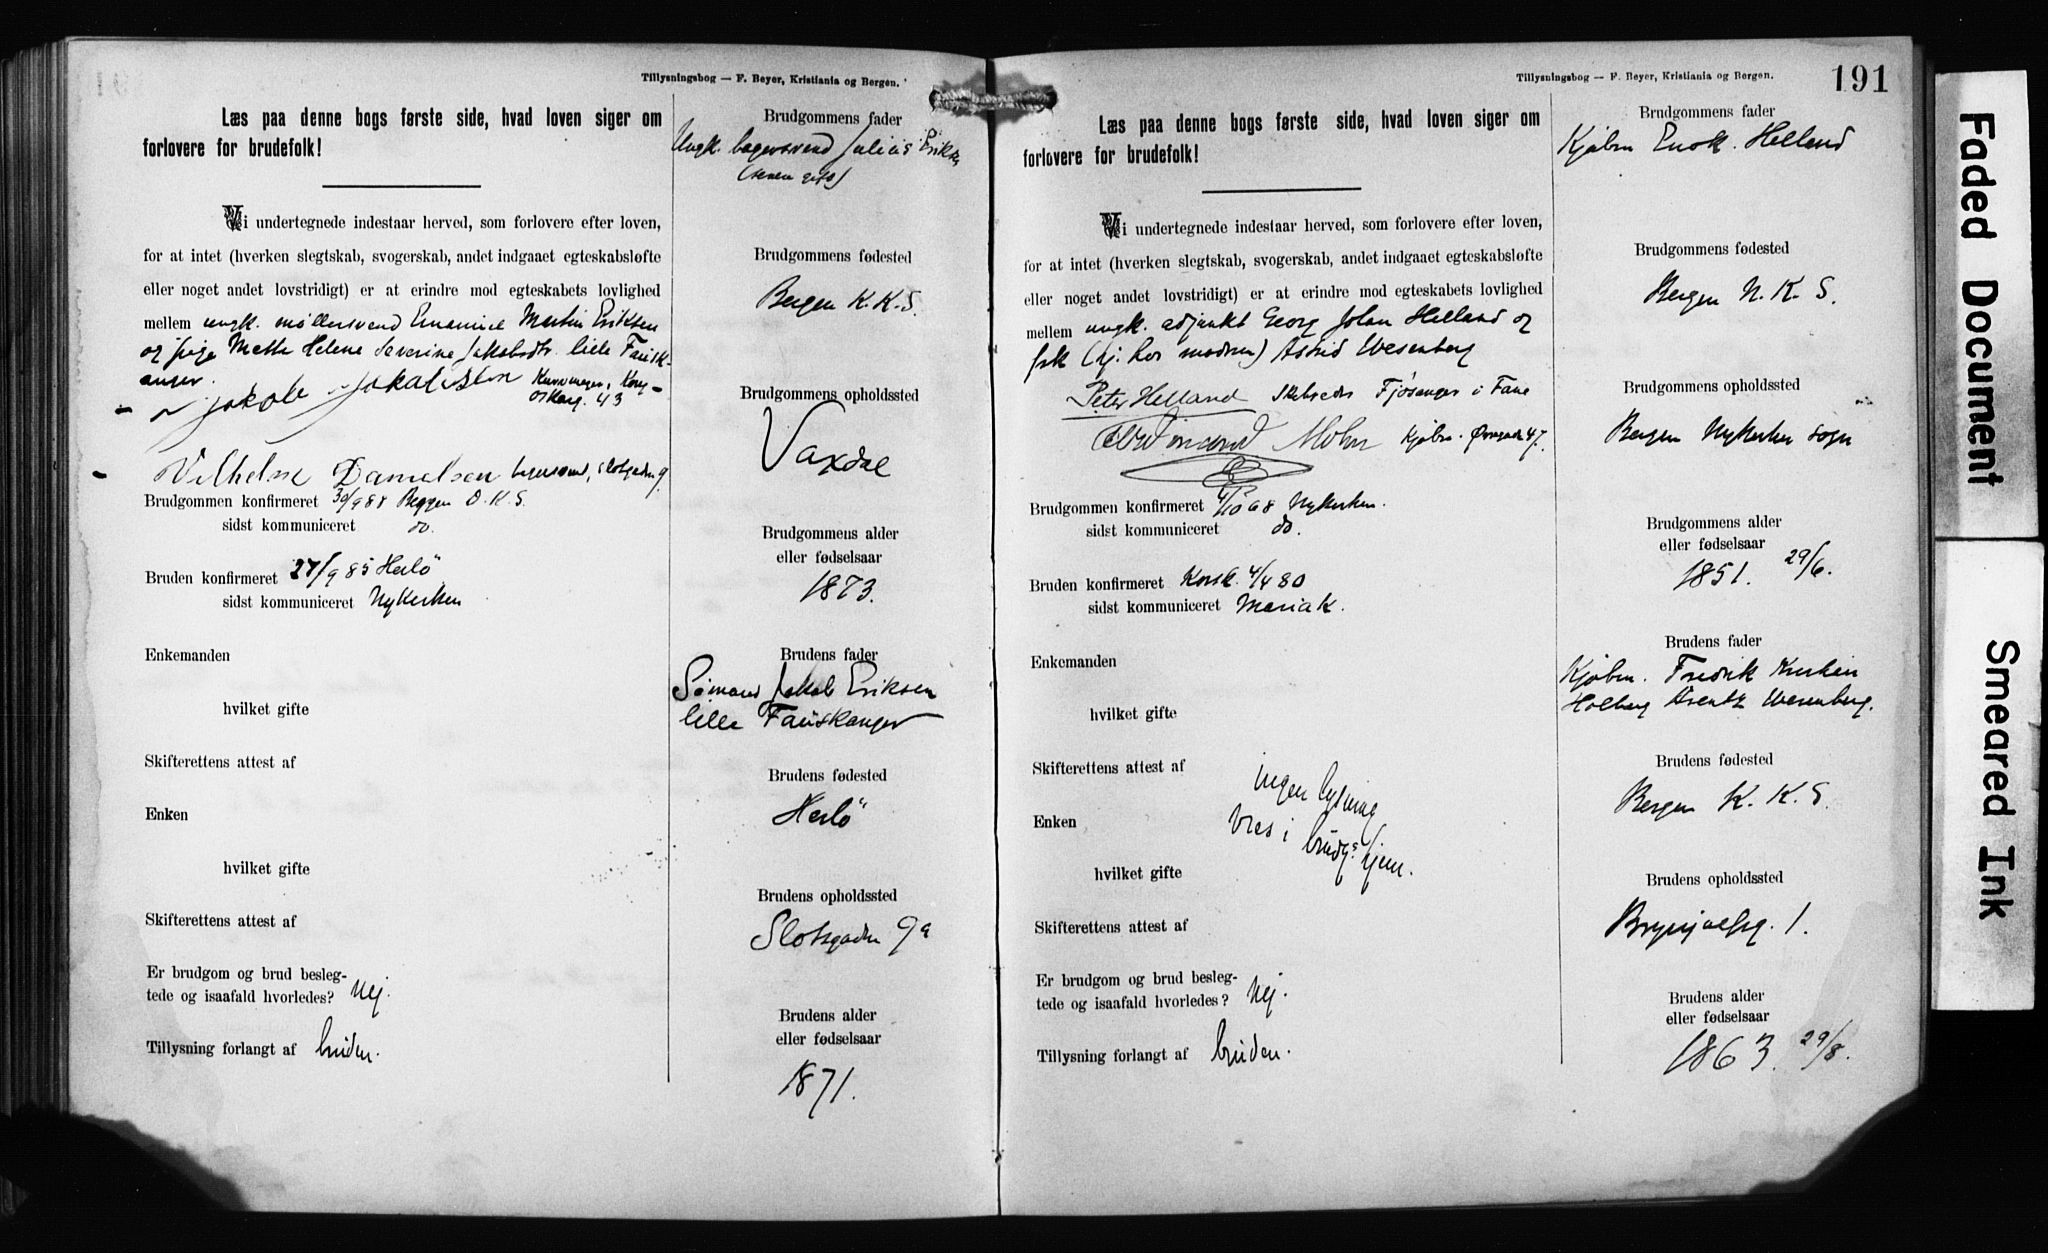 Tillysningsbog — F. Beyer, Kristiania og Bergen.
Læs paa denne bogs første side, hvad loven siger om
forlovere for brudefolk!
Vi undertegnede indestaar herved, som forlovere efter loven,
for at intet (hverken slegtskab, svogerskab, andet indgaaet egteskabsløfte
eller noget andet lovstridigt) er at erindre mod egteskabets lovlighed
mellem ungk. møllersvend Emanuel Martin Eriksen
og pige Metta Helene Severine Jakobsdtr. lille Fausk-
anger.
Jakob Jakobsson
43
Vilhelm Danielsen
Brudgommen konfirmeret 30/9 88 Bergen D. K. S.
sidst kommuniceret do.
Bruden konfirmeret 27/9 85 Herlö
sidst kommuniceret Nykirken
Enkemanden
hvilket gifte
Skifterettens attest af
Enken
hvilket gifte
Skifterettens attest af
Er brudgom og brud besleg-
tede og isaafald hvorledes? Nej.
Tillysning forlangt af bruden.
Brudgommens fader
Ungk. bagersvend Julius Eriks.
(senere gift)
Brudgommens fødested
Bergen K. K. S.
Brudgommens opholdssted
Vaxdal
Brudgommens alder
eller fødselsaar
1873.
Brudens fader
Sömand Jakob Eriksen
lille Fauskanger
Brudens fødested
Herlö
Brudens opholdssted
Slotsgaden 9a
Brudens alder
eller fødselsaar
1871.
Tillysningsbog — F. Beyer, Kristiania og Bergen.
191
Læs paa denne bogs første side, hvad loven siger om
forlovere for brudefolk!
Vi undertegnede indestaar herved, som forlovere efter loven,
for at intet (hverken slegtskab, svogerskab, andet indgaaet egteskabsløfte
eller noget andet lovstridigt) er at erindre mod egteskabets lovlighed
mellem ungk. adjunkt Georg Johan Helland og
frk (hj: hos modren) Astrid Wesenberg
Peter Helland Fjösanger i Fane
Mohn Kjøbm. Øvregade 47.
Brudgommen konfirmeret 4/10 68 Nykirken.
sidst kommuniceret do.
Bruden konfirmeret Korsk. 4/4 80
sidst kommuniceret Mariak.
Enkemanden
hvilket gifte
Skifterettens attest af
Enken
hvilket gifte
Skifterettens attest af
Ingen lysning
bres i
brudg.s hjem.
Er brudgom og brud besleg-
tede og isaafald hvorledes? Nej.
Tillysning forlangt af bruden.
Brudgommens fader
Kjøbm Enok. Helland
Brudgommens fødested
Bergen N. K. S.
Brudgommens opholdssted
Bergen Nykirken sogn
Brudgommens alder
eller fødselsaar
1851. 29/6.
Brudens fader
Kjøbm. Fredrik Kristian
Holberg Arentz Wesenberg.
Brudens fødested
Bergen K. K. S.
Brudens opholdssted
Brynjulfsg. 1.
Brudens alder
eller fødselsaar
1863. 29/8.
Faded Document
Smeared Ink